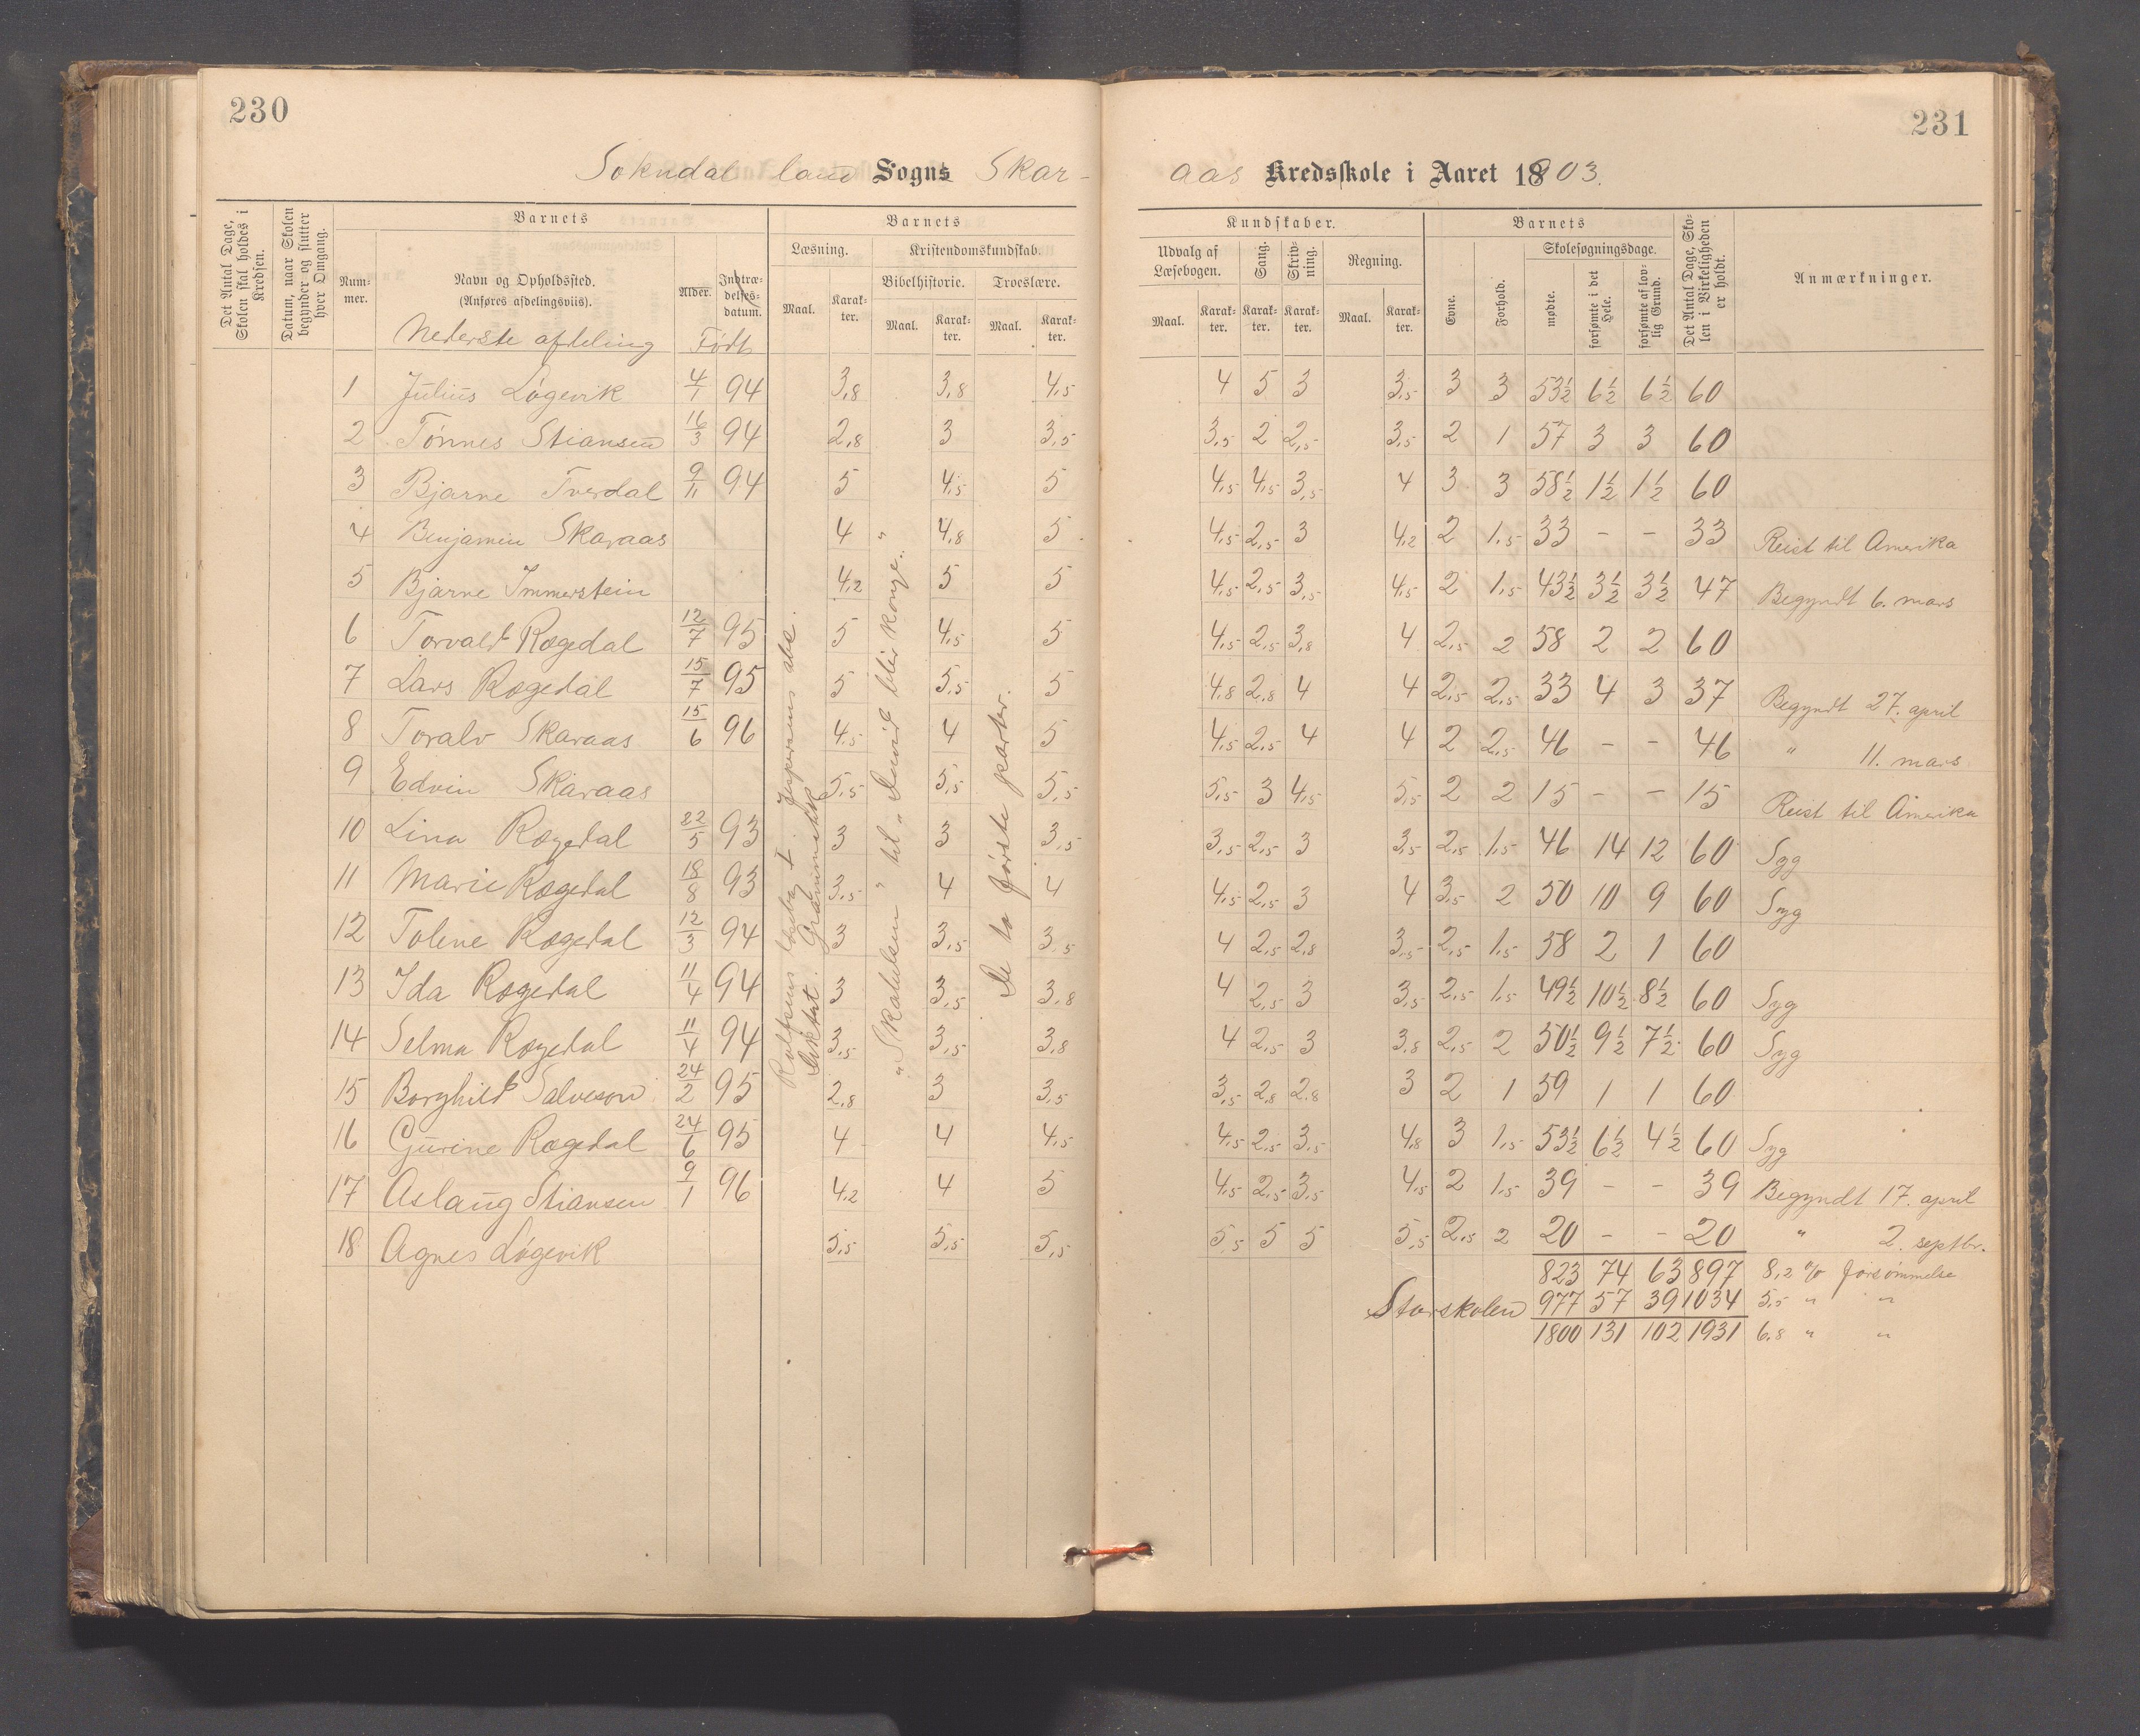 230
231
Sokndal land Sogns Skar-
aas Kredsskole i Aaret 1803.
Det Antal Dage, Skolen skal holdes i Kredsen.
Datum, naar Skolen begynder og slutter hver Omgang.
Barnets
Barnets
Kundskaber.
Barnets
Det Antal Dage, Skolen i Virkeligheden er holdt.
Anmærkninger.
Nummer.
Navn og Opholdssted.
(Anføres afdelingsviis).
Alder.
Indtrædelses-datum.
Læsning.
Kristendomskundskab.
Bibelhistorie.
Troeslære.
Maal.
Karakter.
Maal.
Karakter.
Maal.
Karakter.
Udvalg af Læsebogen.
Sang.
Skrivning.
Regning.
Maal.
Karakter.
Karakter.
Karakter.
Maal.
Karakter.
Evne.
Forhold.
Skolesøgningsdage.
mødte.
forsømte i det Hele.
forsømte af lovlig Grund.
Nederste afdeling Født
1 Julius Løgevik 4/1 94 3,8 3,8 4,5 4 5 3 3,5 3 3 53½ 6½ 6½ 60
2 Tønnes Stiansen 16/3 94 2,8 3 3,5 3,5 2 2,5 3,5 2 1 57 3 3 60
3 Bjarne Tverdal 9/11 94 5 4,5 5 4,5 4,5 3,5 4 3 3 58½ 1½ 1½ 60
4 Benjamin Skaraas 4 4,8 5 4,5 2,5 3 4,2 2 1,5 33 - - 33 Reist til Amerika
5 Bjarne Immerstein 4,2 5 5 4,5 2,5 3,5 4,5 2 1,5 43½ 3½ 3½ 47 Begyndt 6. mars
6 Torvald Rægedal 12/7 95 5 4,5 5 4,5 2,5 3,8 4 2,5 2 58 2 2 60
7 Lars Rægedal 15/7 95 5 5,5 5 4,8 2,8 4 4 2,5 2,5 33 4 3 37 Begyndt 27. april
8 Toralv Skaraas 15/6 96 4,5 4 5 4,5 2,5 4 4 2 2,5 46 - - 46 " 11. mars
9 Edvin Skaraas 5,5 5,5 5,5 5,5 3 4,5 5,5 2 2 15 - - 15 Reist til Amerika
10 Lina Rægedal 22/5 93 3 3 3,5 3,5 2,5 3 3,5 2,5 1,5 46 14 12 60 Syg
11 Marie Rægedal 18/8 93 3,5 4 4 4,5 2,5 3 4 3,5 2 50 10 9 60 Syg
12 Tolene Rægedal 12/3 94 3 3,5 3,5 4 2,5 2,8 3,5 2,5 1,5 58 2 1 60
13 Ida Rægedal 11/4 94 3 3,5 3,8 4 2,5 3 3,5 2,5 1,5 49½ 10½ 8½ 60 Syg
14 Selma Rægedal 11/4 94 3,5 3,5 3,8 4 2,5 3 3,8 2,5 2 50½ 9½ 7½ 60 Syg
15 Borghild Salveson 24/2 95 2,8 3 3,5 3,5 2,8 2,8 3 2 1 59 1 1 60
16 Gurine Rægedal 24/6 95 4 4 4,5 4,5 2,5 3,5 4,8 3 1,5 53½ 6½ 4½ 60 Syg
17 Aslaug Stiansen 9/1 96 4,2 4 5 4,5 2,5 3,5 4,5 2 1,5 39 - - 39 Begyndt 17. april
18 Agnes Løgevik 5,5 5,5 5,5 5,5 5 5 5,5 2,5 2 20 - - 20 " 2. septbr.
823 74 63 897 8,2 % forsømmelse
Storskolen 977 57 39 1034 5,5 " "
1800 131 102 1931 6,8 " "
Diktat. Grammatikk
"Skabelsen" til "David blir konge"
De to første parter.